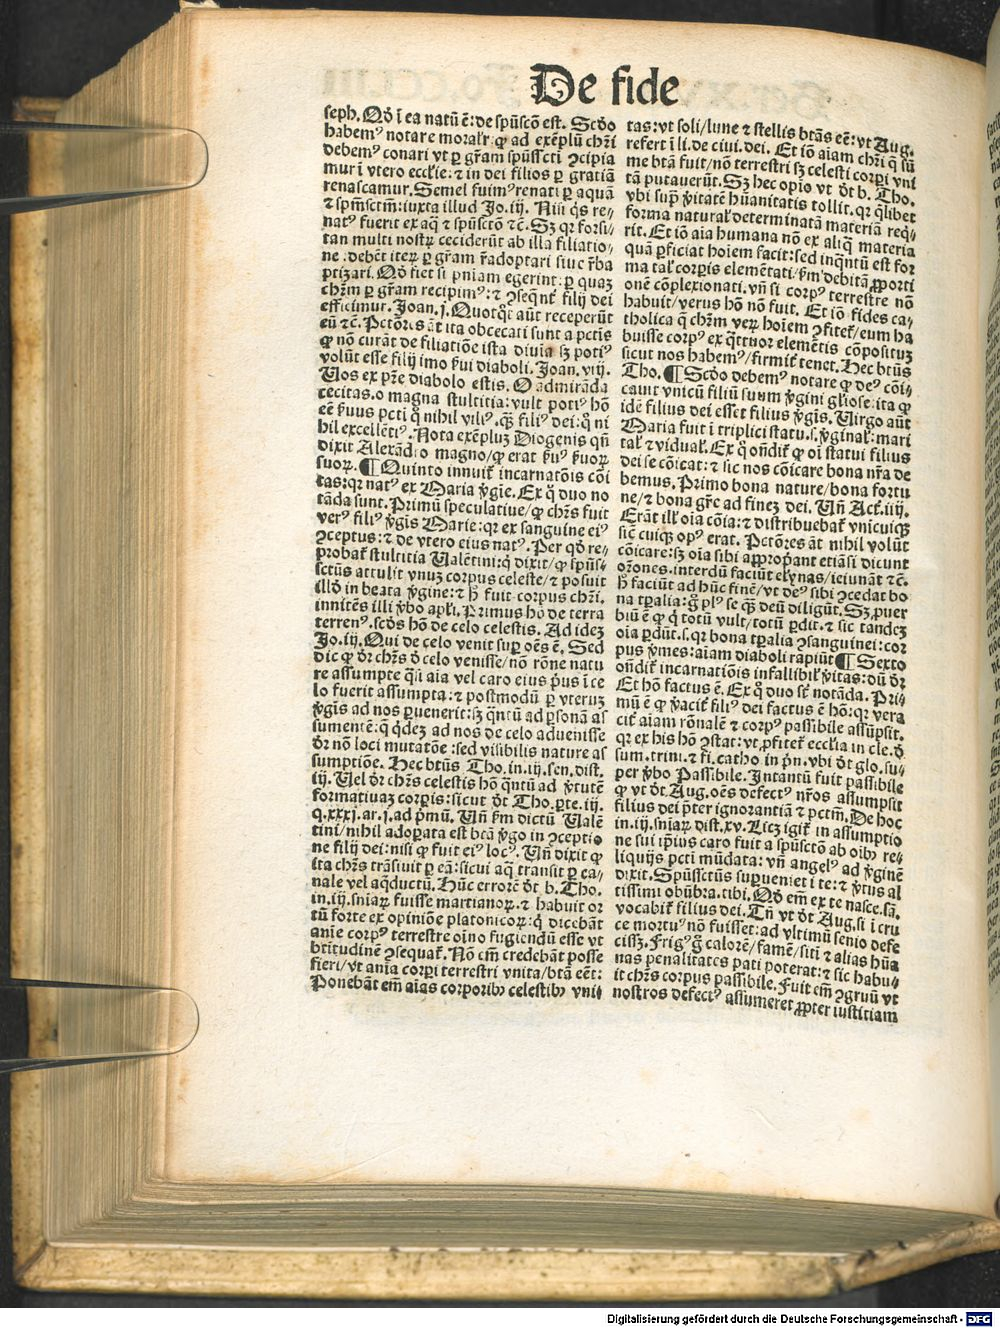 De fide
seph. Qḋ ī ea natū ē: de spūscō est. Scḋo
habemꝰ notare moralr̄ ꝙ ad exēplū chr̄i
debemꝰ conari vt ꝑ gr̄am spūsscti ꝯcipia
mur ī vtero eccl̄ie: ⁊ in dei filios ꝑ gratiā
renascamur. Semel fuimꝰ renati ꝑ aquā
⁊ spm̄sctm̄: iuxta illud Jo. iij. Nisi q̇s re⸗
natꝰ fuerit ex aq̄ ⁊ spūsctō ⁊c̄. Sꝫ qꝛ forsi⸗
tan multi nostrꝝ ceciderūt ab illa filiatio⸗
ne. debēt iteꝝ ꝑ gr̄am r̄adoptari siue r̄ba
ptizari. Qḋ fiet si pniam egerint: ꝑ quaꝫ
chr̄m ꝑ gr̄am recipimꝰ: ⁊ ꝯseq̄nt̄ filij dei
efficimur. Joan. j. Quotq̇t aūt receperūt
eū ⁊c̄. Pctōres āt ita obcecati sunt a pctīs
ꝙ nō curāt de filiatiōe ista diuīa sꝫ potiꝰ
volūt esse filij imo ẜui diaboli. Joan. viij.
Uos ex pr̄e diabolo estis. O admirāda
cecitas. o magna stultitia: vult potiꝰ hō
eē ẜuus pcti q̄ nihil viliꝰ. q̄ꝫ filiꝰ dei: q̄ ni
hil excellētiꝰ. Nota exēpluꝫ Diogenis qn̄
dixit Alexādro magno/ꝙ erat ẜuꝰ ẜuoꝝ
suoꝝ. ¶ Quinto innuit̄ incarnatōis cōi
tas: qꝛ natꝰ ex Maria v̄gīe. Ex q̊ duo no
tāda sunt. Primū speculatiue/ꝙ chr̄s fuit
verꝰ filiꝰ v̄gīs Marie: qꝛ ex sanguine eiꝰ
ꝯceptus: ⁊ de vtero eius natꝰ. Per qḋ re⸗
probat̄ stultitia Ualētini: q̇ dixit/ꝙ spūs⸗
sctūs attulit vnuꝫ corpus celeste/⁊ posuit
illḋ in beata v̄gine: ⁊ h̄ fuit corpus chr̄i.
innitēs illi v̄bo apl̄i. Primus hō de terra
terrenꝰ. scḋs hō de celo celestis. Ad ideꝫ
Jo. iij. Qui de celo venit suꝑ oēs ē. Sed
dic ꝙ dr̄ chr̄s ḋ celo venisse/nō rōne natu
re assumpte q̄si aia vel caro eius pr̄us ī ce
lo fuerit assumpta: ⁊ postmodū ꝑ vteruꝫ
v̄gīs ad nos ꝑuenerit: sꝫ q̄ntū ad ꝑsonā as
sumentē: q̄ q̇deꝫ ad nos de celo aduenisse
dr̄ nō loci mutatōe: sed visibilis nature as
sumptiōe. Hec btūs Tho. in. iij. sen. dist.
iij. Uel dr̄ chr̄s celestis hō q̄ntū ad v̄tutē
formatiuaꝫ corꝑis: sicut ḋt Tho. ꝑte. iij.
q. xxxj. ar. j. ad prīmū. Un̄ ẜm dictū Ualē
tini/nihil adoꝑata est btā v̄go in ꝯceptio
ne filij dei: nisi ꝙ fuit eiꝰ locꝰ. Un̄ dixit ꝙ
ita chr̄s trāsiuit ꝑ eā: sicut aq̄ transit ꝑ ca⸗
nale vel aq̄ductū. Hūc errorē ḋt b. Tho.
in. iij. sniaꝝ fuisse martianoꝝ. ⁊ habuit or
tū forte ex opiniōe platonicoꝝ: q̇ dicebāt
anīe corpꝰ terrestre oīno fugiendū esse vt
btītudinē ꝯsequat̄. Nō em̄ credebāt posse
fieri/vt anīa corꝑi terrestri vnita/btā eēt:
Ponebāt em̄ aīas corporibꝰ celestibꝰ vni⸗
tas: vt soli/lune ⁊ stellis btās eē: vt Aug.
refert ī li. de ciui. dei. Et iō aiam chr̄i q̄ sū
me btā fuit/nō terrestri sꝫ celesti corꝑi vni
tā putauerūt. Sꝫ hec opīo vt ḋt b. Tho.
vbi supᷓ v̄itatē hūanitatis tollit. qꝛ q̄libet
forma natural̄ determinatā materiā req̇⸗
rit. Et iō aīa humana nō ex aliq̄ materia
quā ꝑficiat hoiem facit: sed inq̄ntū est for
ma tal̄ corꝑis elemētati/ẜm debitā ꝓporti
onē cōplexionati. vn̄ si corpꝰ terrestre nō
habuit/verus hō nō fuit. Et iō fides ca⸗
tholica q̄ chr̄m veꝝ hoiem ꝯfitet̄/eum ha
buisse corpꝰ ex q̄ttuor elemētis cōpositūꝫ
sicut nos habemꝰ/firmit̄ tenet. Hec btūs
Tho. ¶ Scḋo debemꝰ notare ꝙ deꝰ cōi⸗
cauit vnicū filiū suum v̄gini gl̄iose: ita ꝙ
idē filius dei esset filius v̄gīs. Uirgo aūt
Maria fuit ī triplici statu. s. v̄ginal̄: mari
tal̄ ⁊ vidual̄. Ex q̊ oñdit̄ ꝙ oī statui filius
dei se cōicat: ⁊ sic nos cōicare bona nr̄a de
bemus. Primo bona nature/bona fortu
ne/⁊ bona gr̄e ad fineꝫ dei. Un̄ Act. iiij.
Erāt ill̄ oīa cōia: ⁊ distribuebat̄ vnicuiqꝫ
sic̄ cuiqꝫ opꝰ erat. Pctōres āt nihil volūt
cōicare: sꝫ oīa sibi apꝓpᷓant etiāsi dicunt
or̄ones. interdū faciūt elynas/ieiunāt ⁊c̄.
h̄ faciūt ad hūc finē/vt deꝰ sibi ꝯcedat bo
na tꝑalia: g̊ plꝰ se q̄ꝫ deū diligūt. Sꝫ ꝓuer
biū ē ꝙ q̇ totū vult/totū ꝑdit. ⁊ sic tandeꝫ
oīa ꝑdūt. s. qꝛ bona tꝑalia ꝯsanguinei: cor
pus v̄mes: aiam diaboli rapiūt ¶ Sexto
oñdit̄ incarnatiōis infallibil̄ v̄itas: dū dr̄
Et hō factus ē. Ex q̊ duo st̄ notāda. Pri⸗
mū ē ꝙ v̄acit̄ filiꝰ dei factus ē hō: qꝛ vera
cit̄ aiam rōnalē ⁊ corpꝰ passibile assūpsit.
qꝛ ex his hō ꝯstat: vt ꝓfitet̄ eccl̄ia in cle. ḋ
sum. trini. ⁊ fi. catho in prīn. vbi ḋt glo. su⸗
per v̄bo Passibile. Jntantū fuit passibile
ꝙ vt ḋt. Aug. oēs defectꝰ nr̄os assumpsit
filius dei pr̄ter ignorantiā ⁊ pctm̄. De hoc
in. iij. sniaꝝ dist. xv. Licꝫ igit̄ in assumptio
ne sui ip̄ius caro fuit a spūsctō ab oibꝰ re⸗
liquijs pcti mūdata: vn̄ angelꝰ ad v̄ginē
dixit. Spūssctūs suꝑueniet ī te: ⁊ v̄tus al
tissimi obūbra. tibi. Qḋ em̄ ex te nasce. sā.
vocabit̄ filius dei. Tn̄ vt ḋt Aug. si ī cru
ce mortuꝰ nō fuisset: ad vltimū senio defe
cissꝫ. Frigꝰ g̊ calorē/famē/sitī ⁊ alias hūa
nas penalitates pati poterat: ⁊ sic habu⸗
it chr̄s corpus passibile. Fuit em̄ ꝯgruū vt
nostros defectꝰ assumeret ꝓpter iustitiam
Digitalisierung gefördert durch die Deutsche Forschungsgemeinschaft - DFG